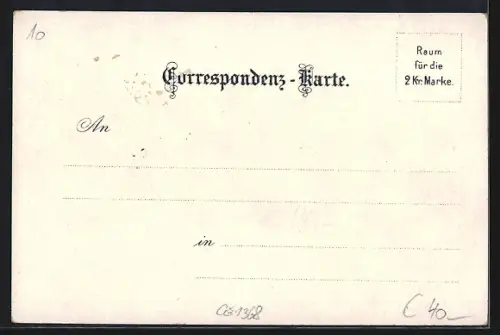 10
Raum
für die
2 Kr. Marke.
Correspondenz-Karte.
An
in
€ 40–